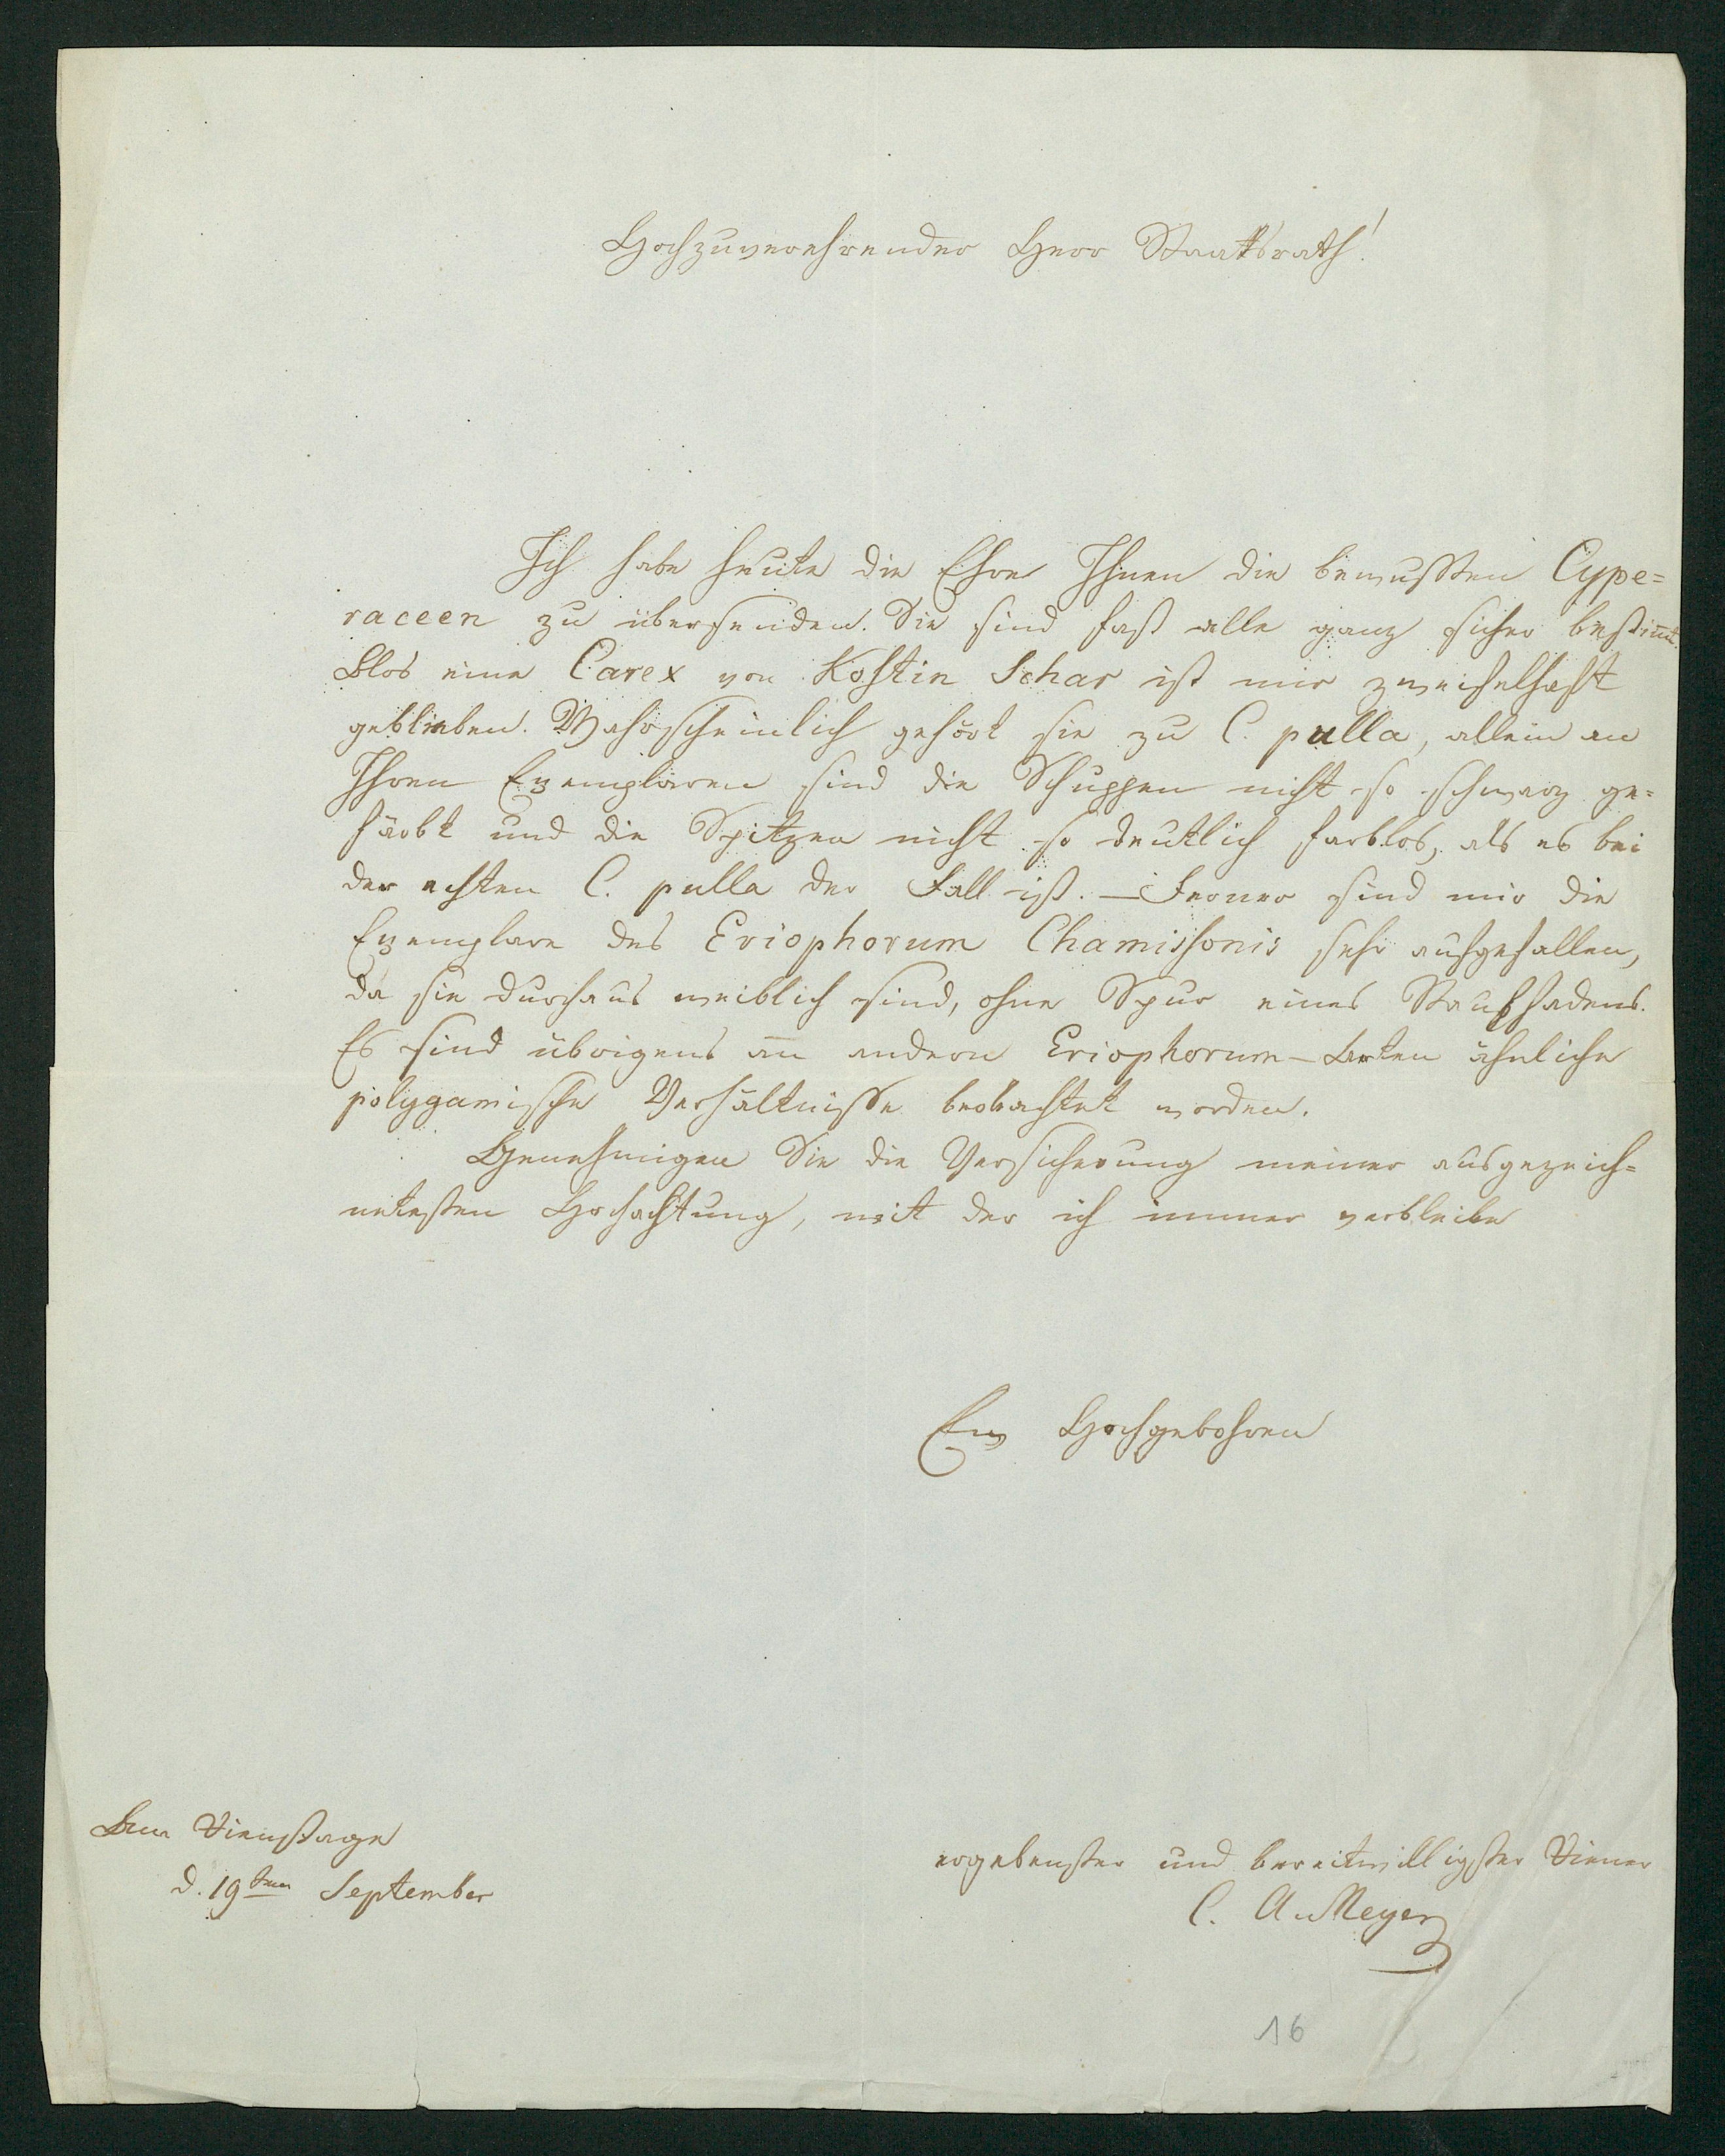 Hochzuverehrender Herr Staatsrath!
Ich habe heute die Ehre Ihnen die bewußten Cype=
raceen zu übersenden. Sie sind fast alle ganz sicher bestim̄t
Blos eine Carex von Kostin Schar ist mir zweifelhaft
geblieben. Wahrscheinlich gehört sie zu C. pulla, allein an
Ihren Exemplaren sind die Schuppen nicht so schwarz ge=
färbt und die Spitzen nicht so deutlich farblos, als es bei
der echten C. pulla der Fall ist. — Ferner sind mir die
Exemplare des Eriophorum Chamissonis sehr aufgefallen,
da sie durchaus weiblich sind, ohne Spur eines Staubfadens.
Es sind übrigens an andern Eriophorum-Arten ähnliche
polygamische Verhältnisse beobachtet worden.
Genehmigen Sie die Versicherung meiner ausgezeich=
netesten Hochachtung, mit der ich immer verbleibe
Ew Hochgebohren
Am Dienstage
d. 19ten September
ergebenster und bereitwilligster Diener
C. A. Meyer
16